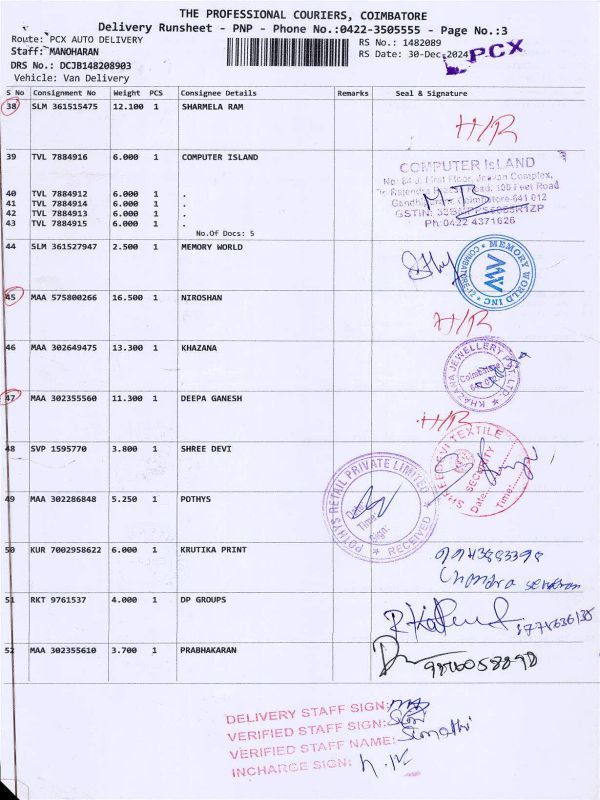 THE PROFESSIONAL COURIERS, COIMBATORE
Delivery Runsheet - PNP - Phone No.:0422-3505555 - Page No.:3
Route: PCX AUTO DELIVERY
RS No.: 1482089
Staff: MANOHARAN
RS Date: 30-Dec-2024
PCX
DRS No.: DCJB148208903
Vehicle: Van Delivery
S No Consignment No Weight PCS Consignee Details Remarks Seal & Signature
38 SLM 361515475 12.100 1 SHARMELA RAM
H/R
39 TVL 7884916 6.000 1 COMPUTER ISLAND
COMPUTER ISLAND
First Floor, Jeevan Complex,
Road, 100 Feet Road
Coimbatore-641 012
GSTIN:
Ph:0422 4371626
40 TVL 7884912 6.000 1 .
41 TVL 7884914 6.000 1 .
42 TVL 7884913 6.000 1 .
43 TVL 7884915 6.000 1 .
No.Of Docs: 5
44 SLM 361527947 2.500 1 MEMORY WORLD
MEMORY WORLD INC
COIMBATORE-12
MW
45 MAA 575800266 16.500 1 NIROSHAN
H/R
46 MAA 302649475 13.300 1 KHAZANA
KHAZANA JEWELLERY PVT. LTD.
Coimbatore
47 MAA 302355560 11.300 1 DEEPA GANESH
H/R
48 SVP 1595770 3.800 1 SHREE DEVI
SHREE DEVI TEXTILE
SECURITY
Date:
Time:
49 MAA 302286848 5.250 1 POTHYS
POTHYS RETAIL PRIVATE LIMITED
Date:
Time:
Sign:
RECEIVED
50 KUR 7002958622 6.000 1 KRUTIKA PRINT
Chandra
51 RKT 9761537 4.000 1 DP GROUPS
52 MAA 302355610 3.700 1 PRABHAKARAN
DELIVERY STAFF SIGN:
VERIFIED STAFF SIGN:
VERIFIED STAFF NAME:
INCHARGE SIGN: